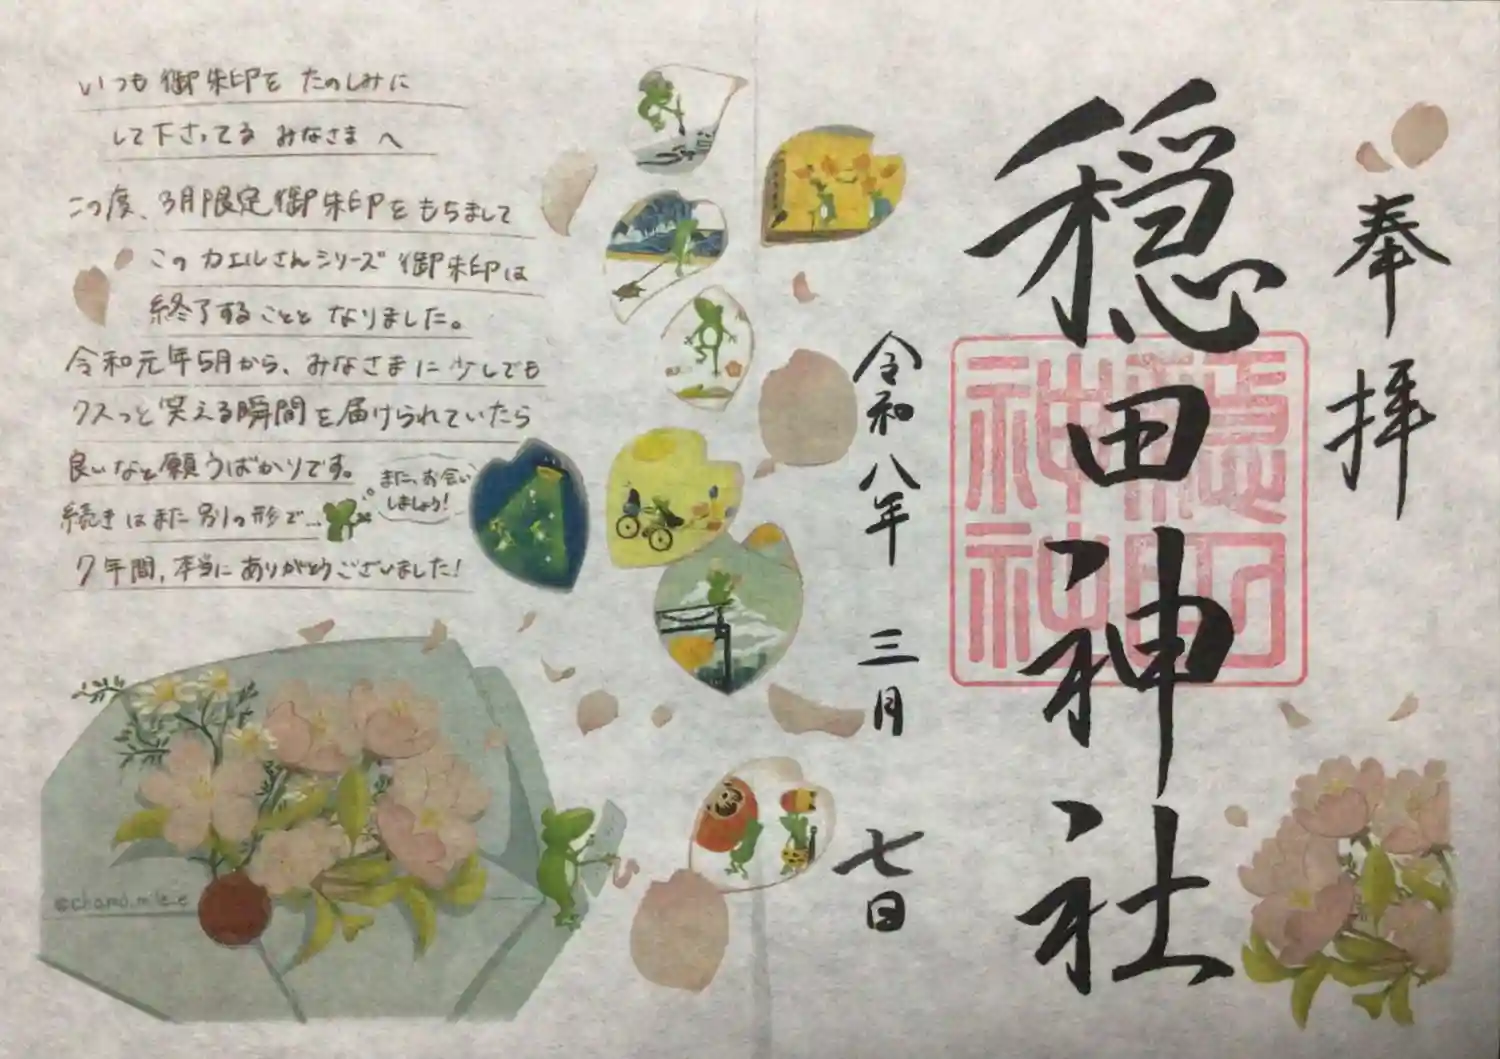 奉拝
穏田神社
穏田神社
令和八年 三月 七日
いつも御朱印をたのしみに
して下さってる みなさまへ
この度、3月限定御朱印をもちまして
このカエルさんシリーズ御朱印は
終了することとなりました。
令和元年5月から、みなさまに少しでも
クスっと笑える瞬間を届けられていたら
良いなと願うばかりです。
続きはまた別の形で…
また、お会い
しましょう!
7年間、本当にありがとうございました!
@chamo.mile.e